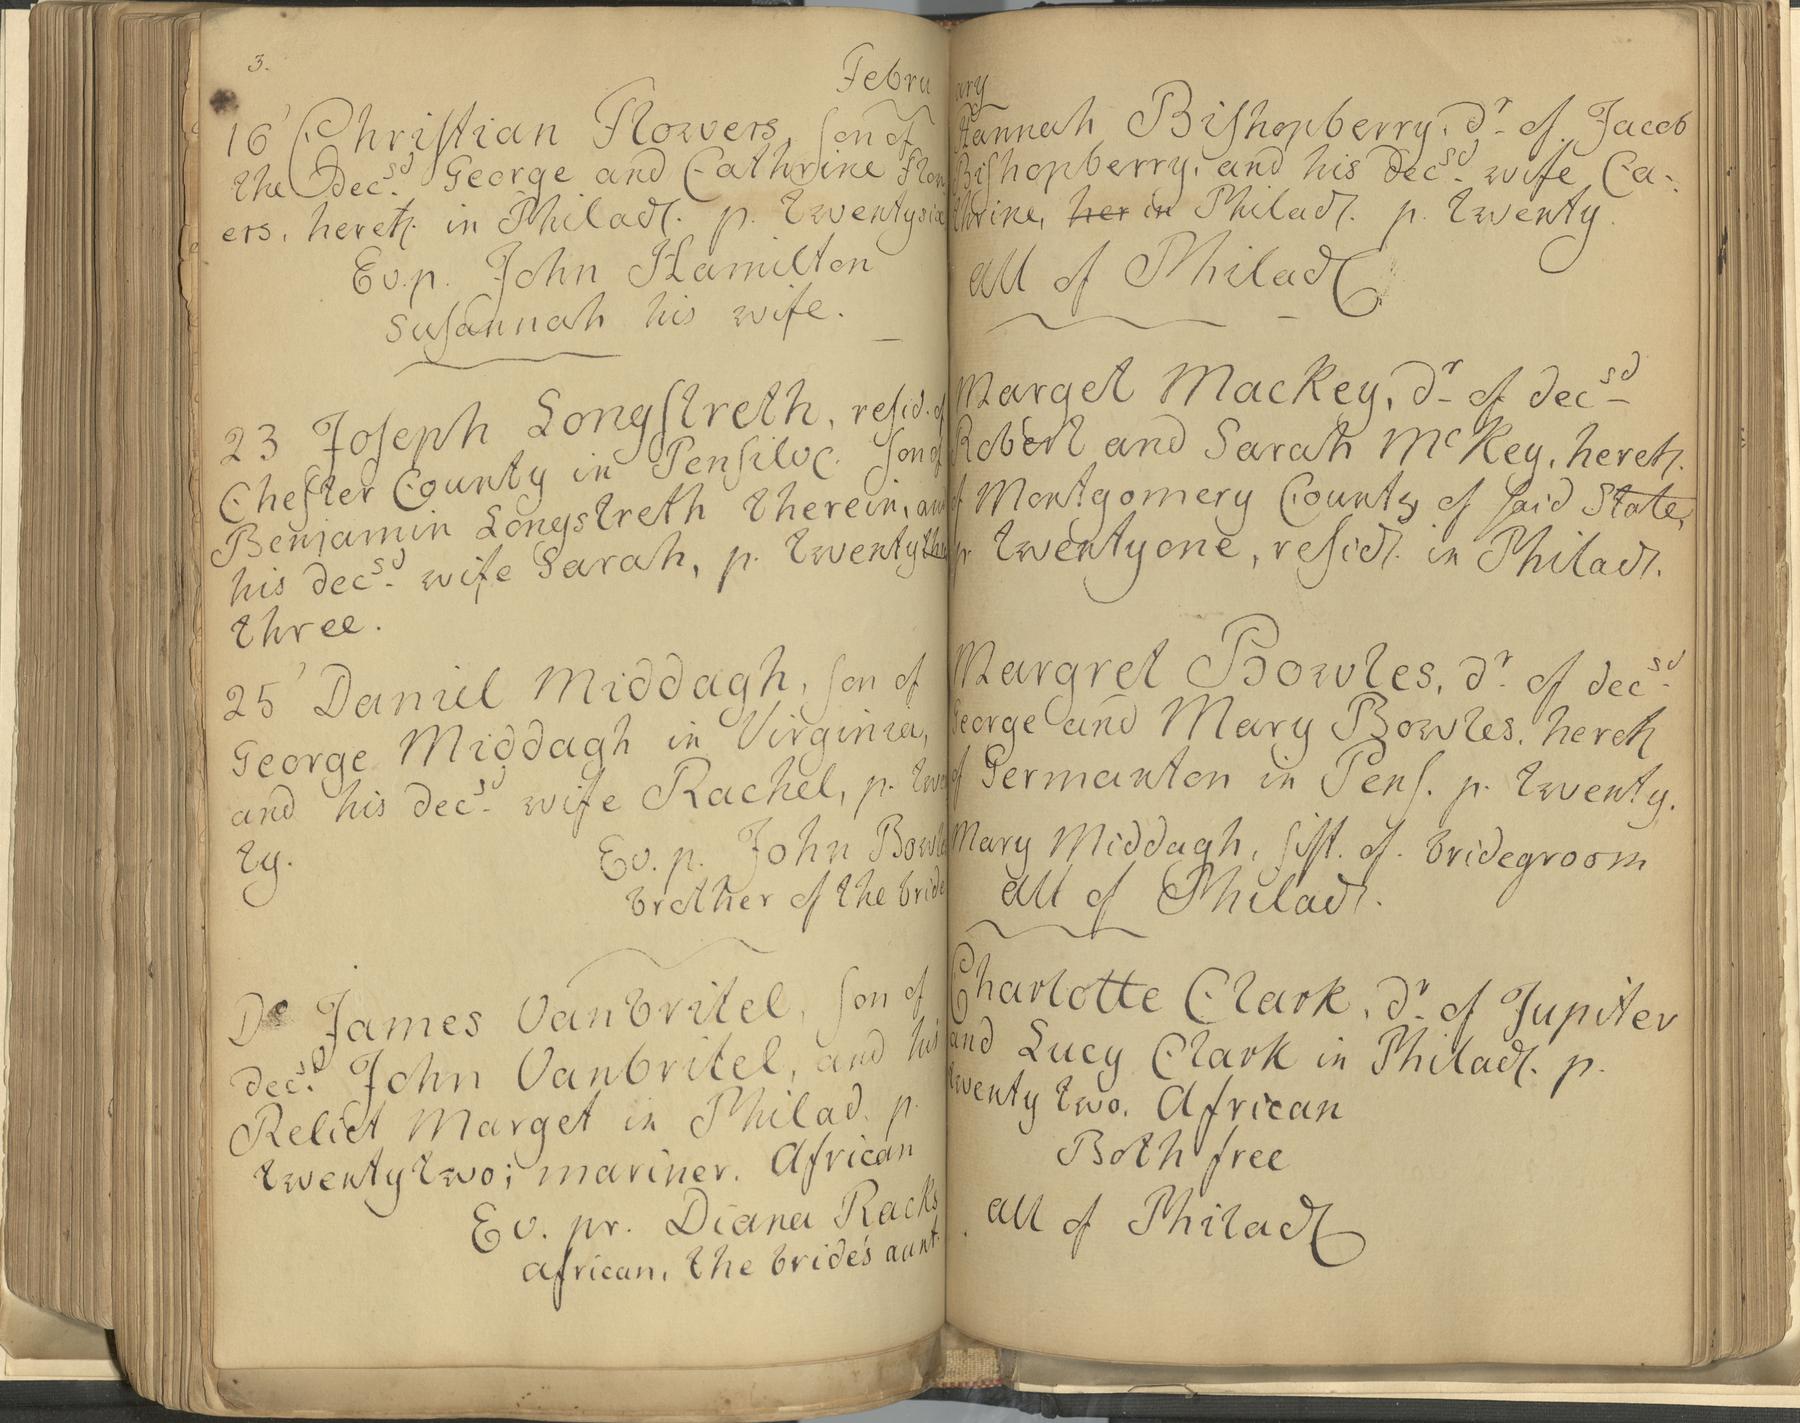 3.
Febru
16 Christian Flowers, son of
the Decsd. George and Cathrine Flow
ers, hereto. in Philad. p. twentysix
Ev. p. John Hamilton
Susannah his wife.
23 Joseph Longstreth, resid. of
Chester County in Pensilv. son of
Benjamin Longstreth therein, and
his decsd. wife Sarah, p. twenty
three.
25 Daniel Middagh, son of
George Middagh in Virginia,
and his decsd. wife Rachel, p. twen
ty.
Ev. p. John Bowles
brother of the bride
Do James Vanbritel, son of
decsd. John Vanbritel, and his
Relict Marget in Philad. p.
twentytwo; mariner. African
Ev. pr. Diana Racks
african, the bride's aunt.
ary
Hannah Bishopberry, dr. of Jacob
Bishopberry, and his decsd. wife Ca-
thrine, her in Philad. p. twenty.
all of Philad
Marget Mackey, dr of decsd
Robert and Sarah McKey, heret.
of Montgomery County of said State,
p. twentyone, resid. in Philad.
Margret Bowles, dr. of decsd.
George and Mary Bowles, heret
of Germanton in Pens. p. twenty.
Mary Middagh, sist. of. bridegroom
all of Philad.
Charlotte Clark, dr. of Jupiter
and Lucy Clark in Philad. p.
twenty two. African
Both free
all of Philad